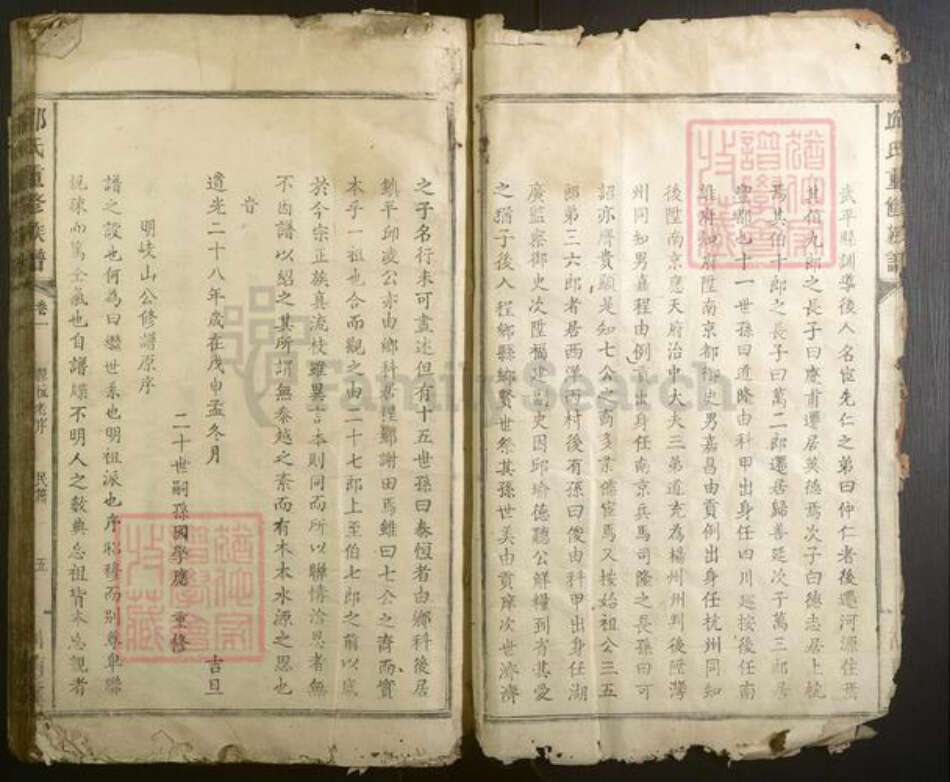 武平縣訓導後人名宦先仁之弟曰仲仁者後遷河源住焉
其伯九郎之長子曰慶甫遷居英德焉次子曰德志居上杭
焉其伯十郎之長子曰萬二郎遷居歸善延次子萬三郎居
豐鄉也十一世孫曰道隆由科甲出身任四川巡按後任南
雄府知府陞南京都御史男嘉昌由貢例出身任杭州同知
後陞南京應天府治中大夫三弟道充為楊州州判後陞灣
州同知男嘉程由例貢出身任南京兵馬司隆之長孫曰可
詔亦膺貴顯是知七公之裔多業儒宦焉又按始祖公三五
郎弟三六郎者居西洋丙村後有孫曰俊由科甲出身任湖
廣監察御史次陞福建副史因邱瑜德聽公鮮糧到省其愛
之猶子後入程鄉縣鄉賢世祭其孫世美由貢庠次世濟濟
之子名行未可盡述但有十五世孫曰春恆者由鄉科後居
鎮平邱凌公亦由鄉科居程鄉謝田焉雖曰七公之裔而實
本乎一祖也合而觀之由二十七郎上至伯七郎之前以底
於今宗正族真流枝雖異言本則同而所以聯情洽恩者無
不因譜以紹之其所謂無秦越之素而有木本水源之思也
旹
道光二十八年歲在戊申孟冬月 吉旦
二十世嗣孫國學應 重修
明岐山公修譜原序
譜之設也何為曰繼世系也明祖派也序昭穆而別尊卑聯
親疎而篤全氣也自譜牒不明人之斁典忘祖背本忘親者
邱氏重修族譜
卷一
五
FamilySearch